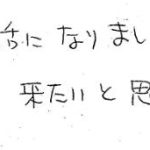 になりまし
来たいと思